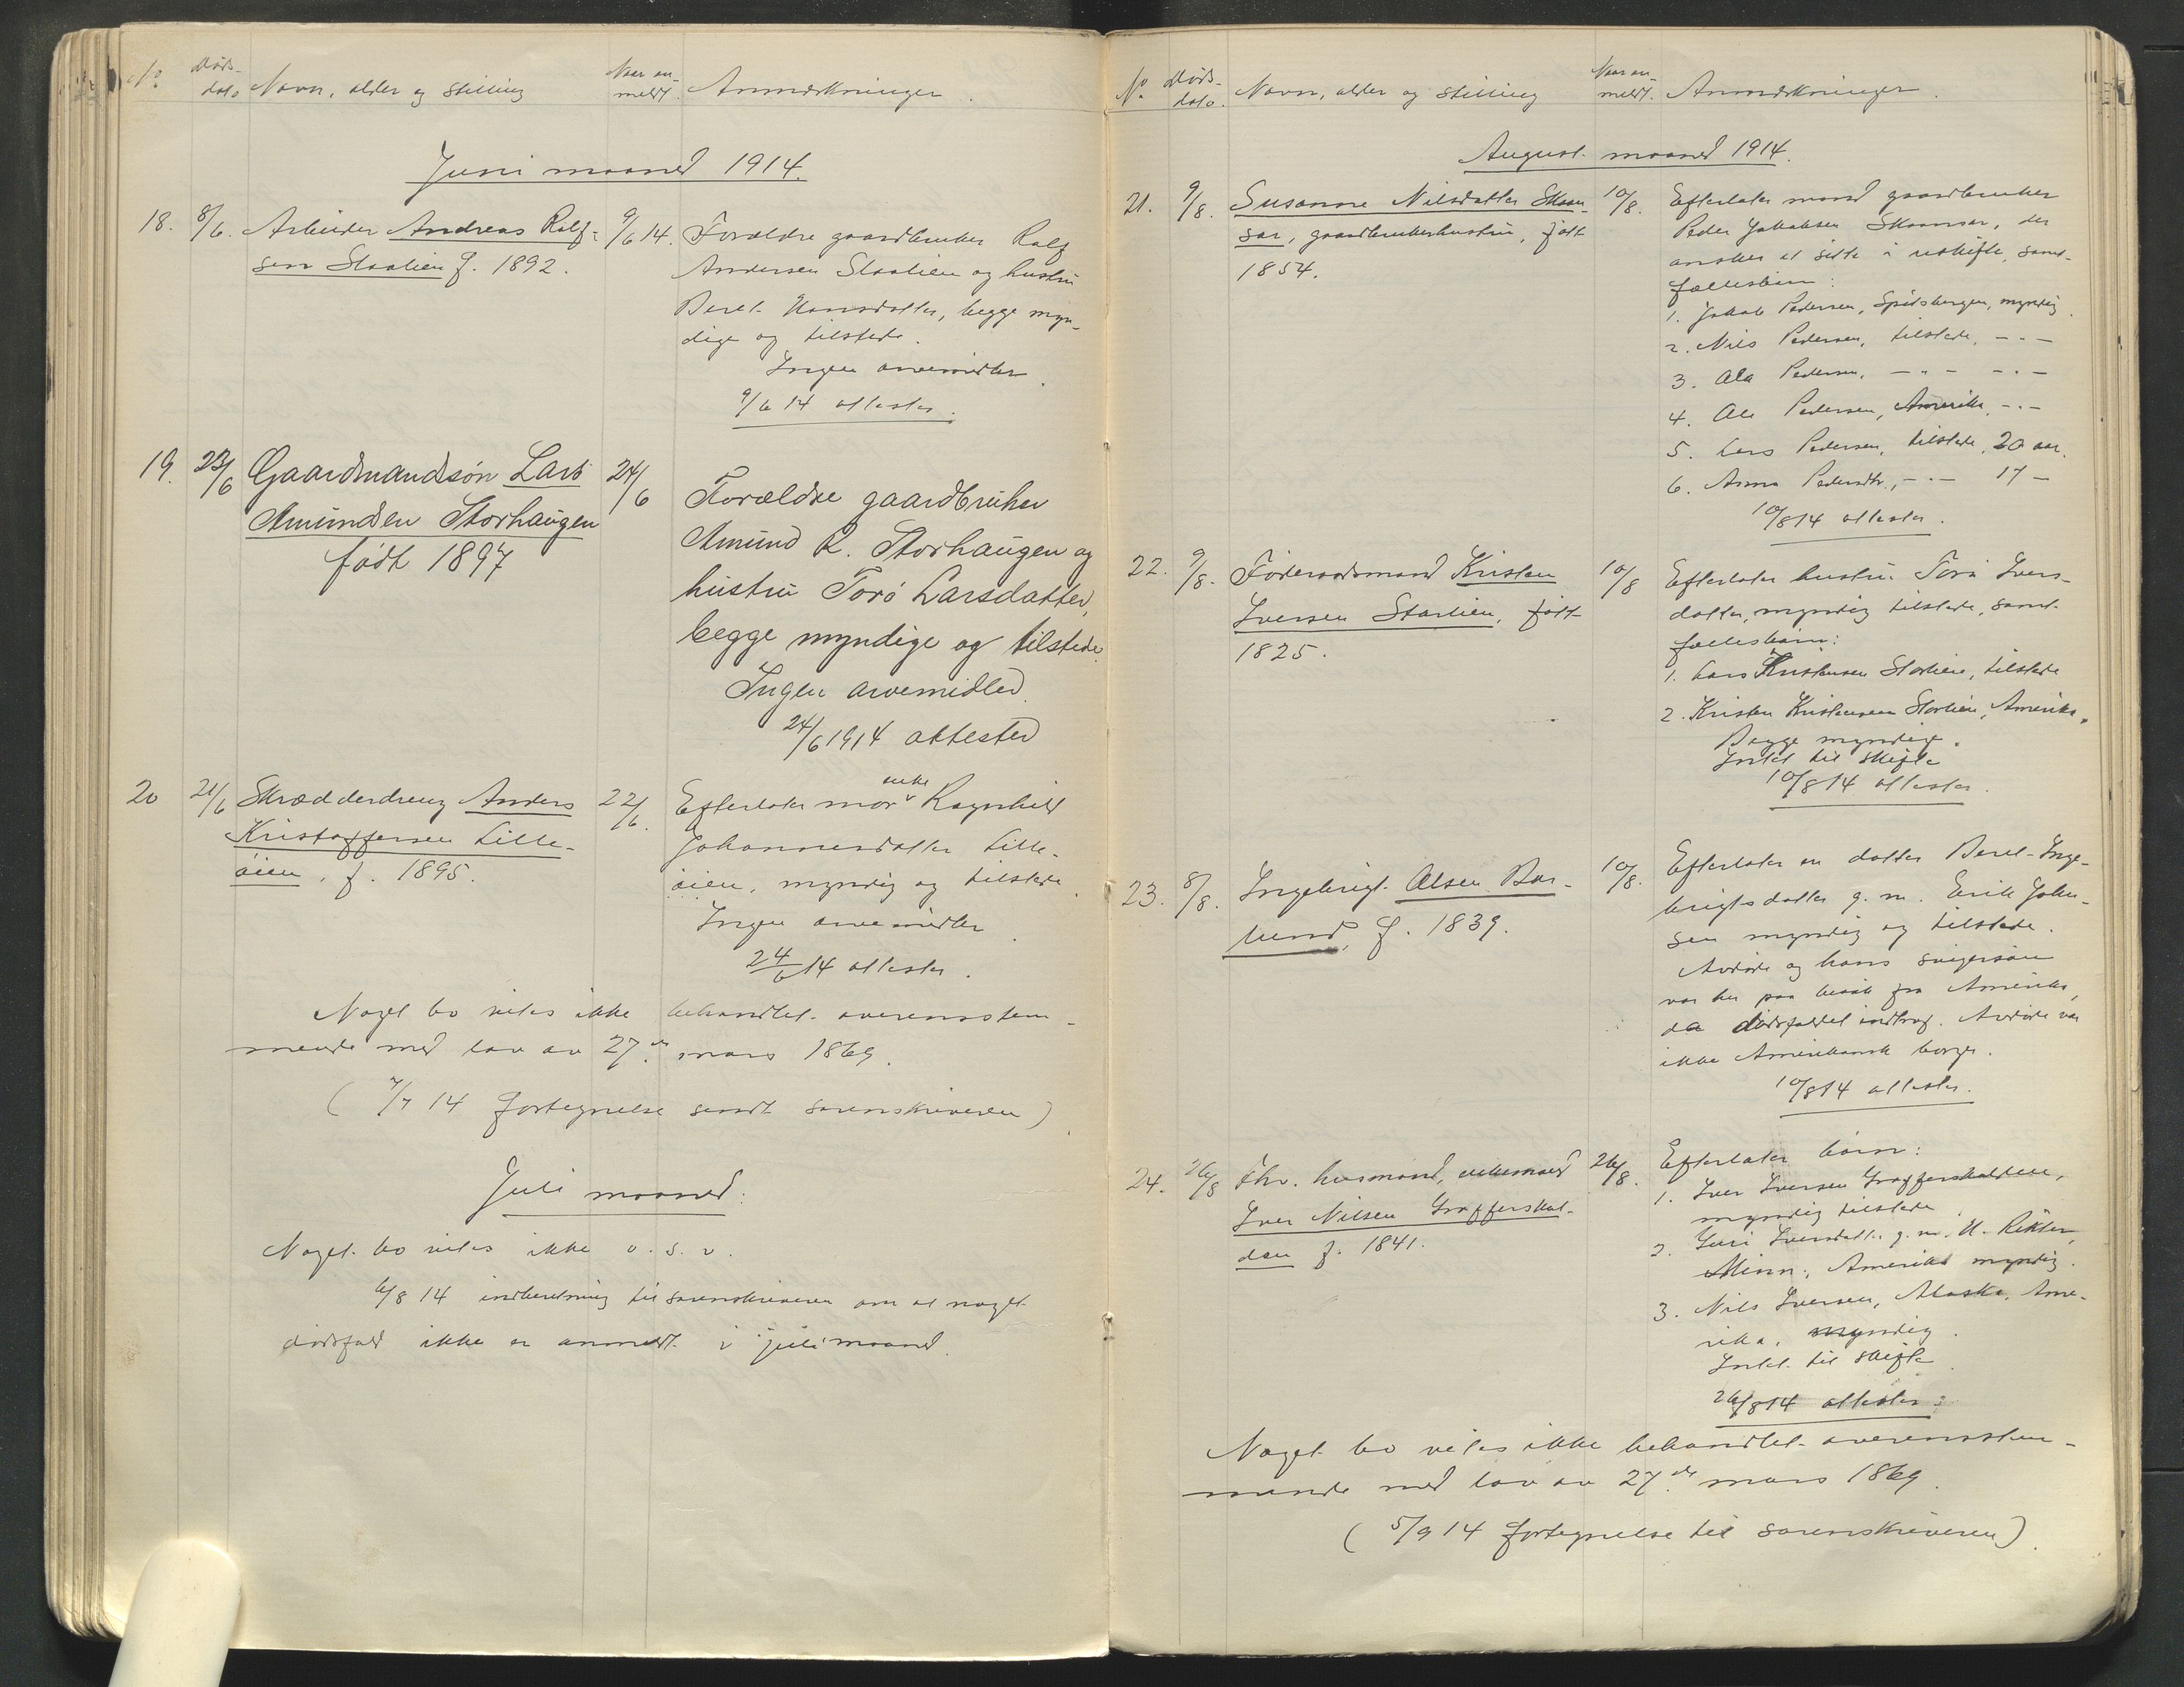 No. Døds-
dato Navn, alder og stilling
Naar an-
meldt. Anmerkninger.
Juni maaned 1914.
18. 8/6. Arbeider Andreas Rolf-
sen Slaalien f. 1892.
9/6 14. Forældre gaardbruker Rolf
Andersen Slaalien og hustru
Beret Hansdatter, begge myn-
dige og tilstede.
Ingen arvemidler.
9/6 14 attester.
19. 23/6 Gaardmandsøn Lars
Amundsen Storhaugen
født 1897
24/6
Forældre gaardbruker
Amund R. Storhaugen og
hustru Toro Larsdatter,
begge myndige og tilstede.
Ingen arvemidler.
24/6 1914 attester
20 21/6 Skrædderdreng Anders
Kristoffersen Lille-
øien, f. 1895.
22/6. Efterlater mor enke Ragnhild
Johannesdatter Lille-
øien, myndig og tilstede.
Ingen arvemidler.
24/6 14 attester.
Noget bo vites ikke behandlet overensstem-
mende med lov av 27de mars 1869.
(7/7 14 fortegnelse sendt sorenskriveren).
Juli maaned.
Noget bo vites ikke o. s. v.
6/8 14 indberetning til sorenskriveren om at noget
dødsfald ikke er anmeldt i juli maaned.
No. Døds-
dato. Navn, alder og stilling
Naar an-
meldt. Anmerkninger.
August maaned 1914.
21. 9/8. Susanne Nilsdatter Skam-
sar, gaardbrukerhustru, født
1854.
10/8. Efterlater mand gaardbruker
Peder Jakobsen Skamsar, der
ønsker at sitte i uskifte, samt
fællesbørn:
1. Jakob Pedersen, Spitsbergen, myndig.
2. Nils Pedersen, tilstede, -"-
3. Ola Pedersen, -"- -"-
4. Ole Pedersen, Amerika, -"-
5. Lars Pedersen, tilstede, 20 aar.
6. Anna Pedersdtr., -"- 17 -
10/8 14 attester.
22. 9/8. Føderaadsmand Kristen
Iversen Stavlien, født
1825.
10/8 Efterlater hustru Toro Ivers-
datter, myndig tilstede, samt
fællesbørn:
1. Lars Kristensen Stavlien, tilstede
2. Kristen Kristensen Stavlien, Amerika.
Begge myndige.
Intet til skifte
10/8 14 attester.
23. 8/8. Ingebrigt Olsen Bar-
lund, f. 1839.
10/8. Efterlater en datter Beret Inge-
brigtsdatter g. m. Erik John-
sen myndig og tilstede.
Avdøde og hans svigersøn
var her paa besøk fra Amerika,
da dødsfaldet indtraf. Avdøde var
ikke Amerikansk borger.
10/8 14 attester.
24. 26/8 Fhv. husmand, enkemand
Iver Nilsen Grafferskal-
den f. 1841.
26/8. Efterlater børn:
1. Iver Iversen Grafferskalden,
myndig tilstede
2. Guri Iversdatter g. m. H. Rikter,
Minn., Amerika myndig.
3. Nils Iversen, Alaska, Ame-
rika, myndig.
Intet til skifte.
26/8 14 attester.
Noget bo vites ikke behandlet overensstem-
mende med lov av 27de mars 1869.
(5/9 14 fortegnelse til sorenskriveren).